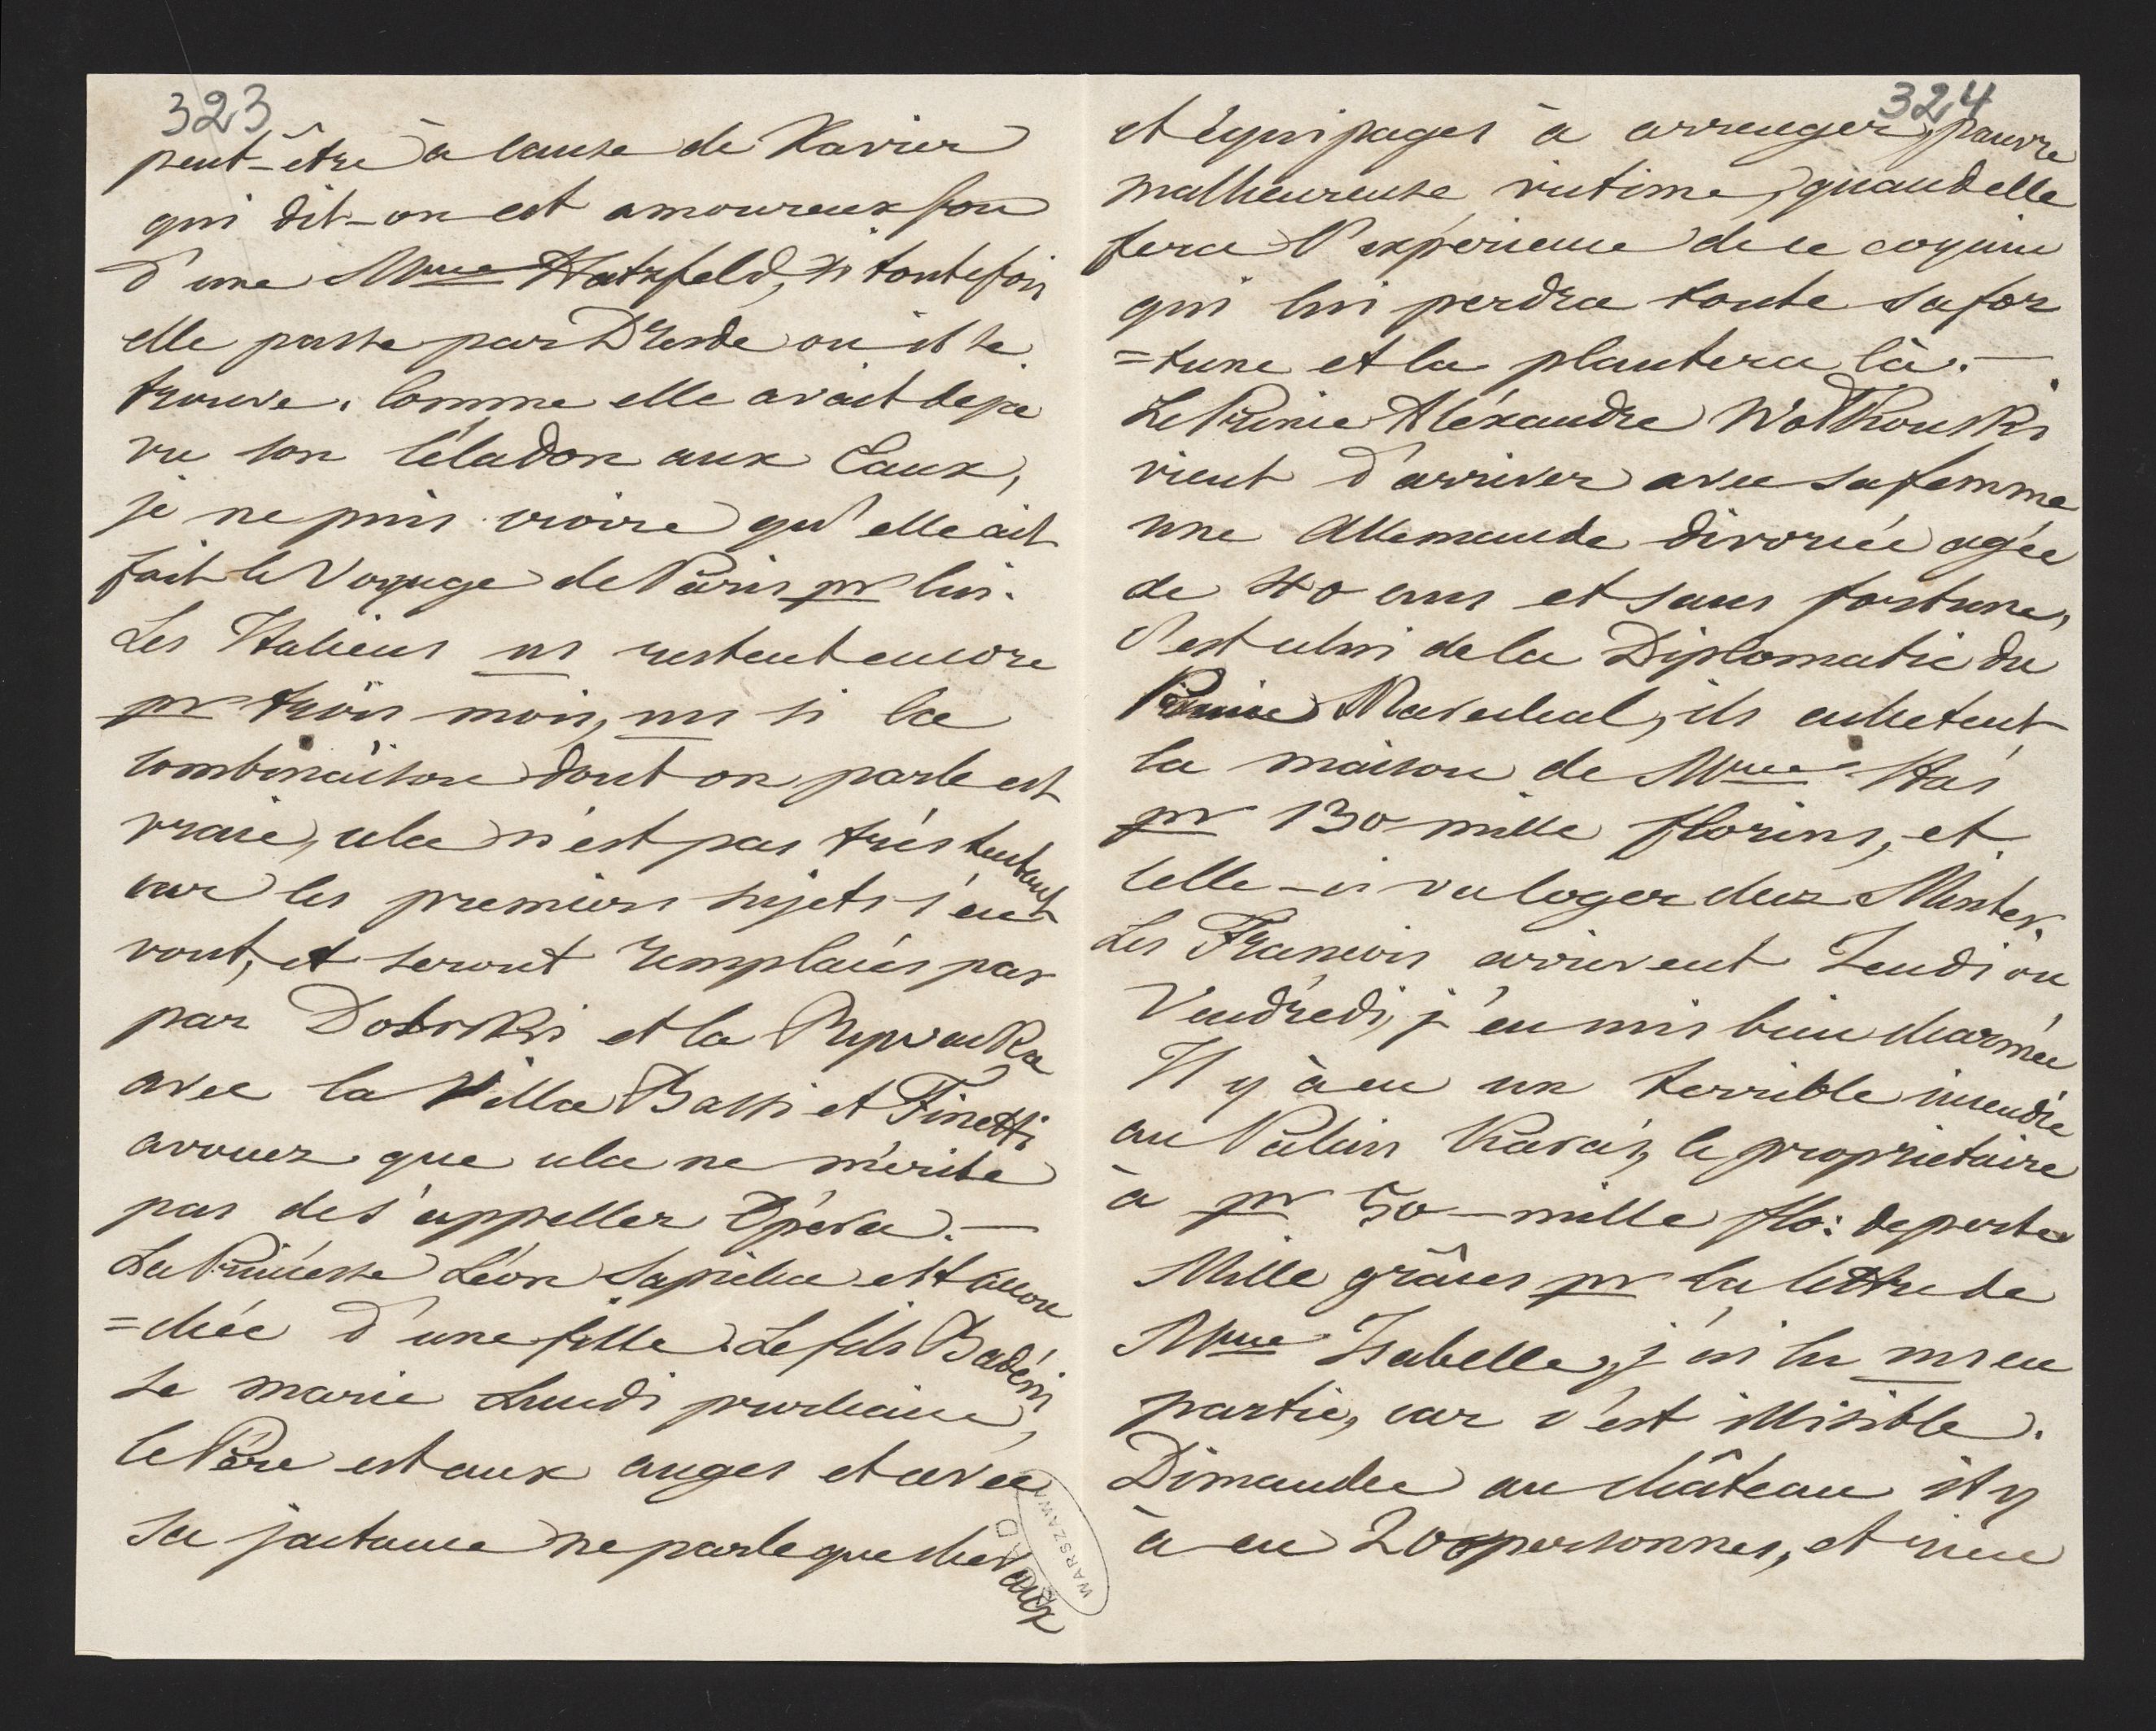 323
peut-être à cause de Xavier
qui dit-on est amoureux fou
d'une Mme Hatzfeld, si toutefois
elle passe par Dresde où il se
trouve. Comme elle avait deja
vu son Céladon aux Eaux,
je ne puis croire qu'elle ait
fait le Voyage de Paris pr lui.
Les Italiens ns restent encore
pr trois mois, ms si la
combinaison dont on parle est
vraie, cela n'est pas très tentant
car les premiers sujets s'en
vont, et seront remplacés par
par Dobrski et la
avec la Villa Bassi et Finetti
avouez que cela ne mérite
pas de s'appeller Opéra.—
La Princesse Léon Sapieha est accou
=chée d'une fille. Le fils Badéni
se marie Lundi prochaine,
le Père est aux anges et avec
sa jactance ne parle que chevaux
WARSZAWA
324
et équipages à arrenger, pauvre
malheureuse victime, quand elle
fera l'expérience de ce coquin
qui lui perdra toute sa for
=tune et la plantera là.—
Le Prince Aléxandre Wolkonski
vient d'arriver avec sa femme
une Allemande divorcée agée
de 40 ans et sans fortune,
c'est celui de la Diplomatie du
Prince Marechal, ils achetent
la maison de Mme Haś
pr 130 mille florins, et
celle-ci va loger chez Minter.
Les Francois arrivent Jeudi ou
Vendrédi, j'en suis bien charmée
Il y à eu un terrible incendie
au Palais Karaś, le propriétaire
à pr 50-mille flo: de perte
Mille grâces pr la lettre de
Mme Isabelle, j'ai lu ms en
partie, car c'est illisible.
Dimanche au château il y
à eu 200 personnes, et rien